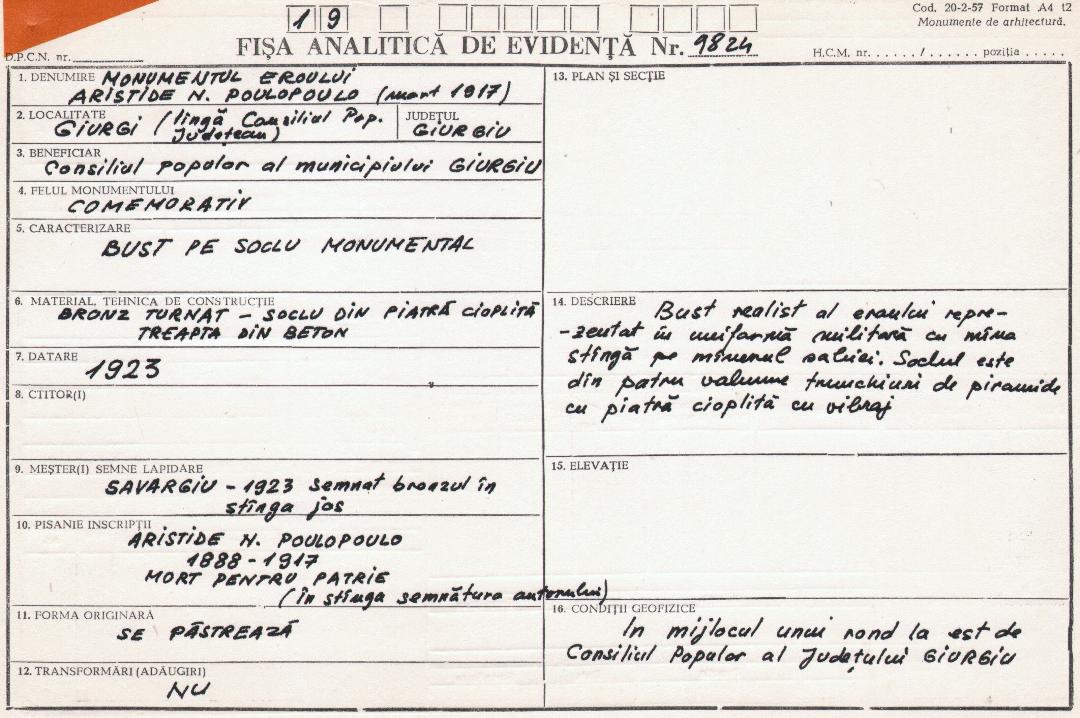 Cod. 20-2-57 Format A4 t2
Monumente de arhitectură.
1 9
FIȘA ANALITICĂ DE EVIDENȚĂ Nr. 9824
D.P.C.N. nr.
H.C.M. nr. . . . . . . / . . . . . . poziția . . . . .
1. DENUMIRE MONUMENTUL EROULUI
ARISTIDE N. POULOPOULO (mort 1917)
2. LOCALITATE
GIURGI (lîngă Consiliul Pop.
Județean)
JUDEȚUL
GIURGIU
3. BENEFICIAR
Consiliul Popular al municipiului GIURGIU
4. FELUL MONUMENTULUI
COMEMORATIV
5. CARACTERIZARE
BUST PE SOCLU MONUMENTAL
6. MATERIAL, TEHNICA DE CONSTRUCȚIE
BRONZ TURNAT - SOCLU DIN PIATRĂ CIOPLITĂ
TREAPTA DIN BETON
7. DATARE
1923
8. CTITOR(I)
9. MEȘTER(I) SEMNE LAPIDARE
SAVARGIU - 1923 semnat bronzul în
stînga jos
10. PISANIE INSCRIPȚII
ARISTIDE N. POULOPOULO
1888 - 1917
MORT PENTRU PATRIE
(în stînga semnătura autorului)
11. FORMA ORIGINARĂ
SE PĂSTREAZĂ
12. TRANSFORMĂRI (ADĂUGIRI)
NU
13. PLAN ȘI SECȚIE
14. DESCRIERE
Bust realist al eroului repre-
-zentat în uniformă militară cu mîna
stîngă pe mînerul sabiei. Soclul este
din patru volume trunchiuri de piramide
cu piatră cioplită cu vibraj
15. ELEVAȚIE
16. CONDIȚII GEOFIZICE
In mijlocul unui rond la est de
Consiliul Popular al Județului GIURGIU